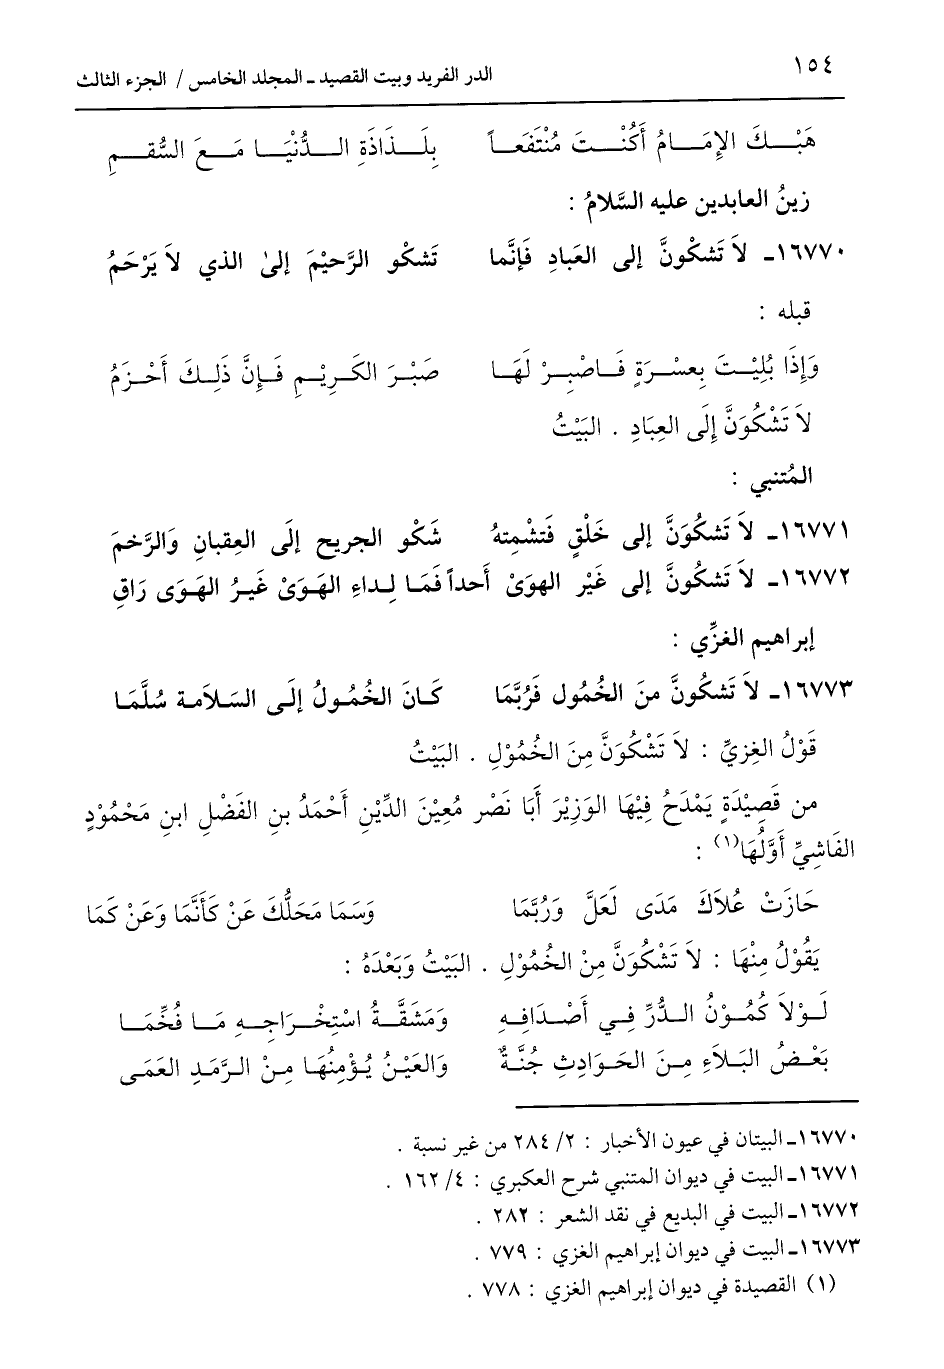 ١٥٤ الدر الفريد وبيت القصيد ـ المجلد الخامس / الجزء الثالث
هَبْـكَ الإِمَـامُ أَكُنْـتَ مُنْتَفَعـاً بِلَـذَاذَةِ الـدُّنْيَـا مَـعَ السُّقـمِ
زينُ العابدين عليه السَّلامُ :
١٦٧٧٠ـ لاَ تَشكُونَّ إلى العَبادِ فَإنَّما تَشكْو الرَّحيْمَ إلىٰ الذي لاَ يَرْحَمُ
قبله :
وَإِذَا بُلِيْـتَ بِعسْـرَةٍ فَـاصْبِـرْ لَهَـا صَبْـرَ الكَـرِيْـمِ فَـإنَّ ذَلِـكَ أَحْـزَمُ
لاَ تَشْكُوَنَّ إِلَى العِبادِ . البَيْتُ
المُتنبي :
١٦٧٧١ـ لاَ تَشكُوَنَّ إلى خَلْقٍ فَتشْمِتهُ شَكْو الجريح إلَى العِقبانِ وَالرَّخمَ
١٦٧٧٢ـ لاَ تَشكُونَّ إلى غَيْر الهوَىْ أَحداً فَمَا لِـداءِ الهَـوَىْ غَيـرُ الهَـوَى رَاقِ
إبراهيم الغزِّي :
١٦٧٧٣ـ لاَ تَشكُونَّ منَ الخُمُول فَرُبَّمَا كَـانَ الخُمُـولُ إلَـى السَـلاَمـة سُلَّمَـا
قَوْلُ الغِزيِّ : لاَ تَشْكُوَنَّ مِنَ الخُمُوْلِ . البَيْتُ
من قَصِيْدَةٍ يَمْدَحُ فِيْهَا الوَزِيْرَ أَبَا نَصْر مُعِيْنَ الدِّيْنِ أَحْمَدُ بنِ الفَضْلِ ابنِ مَحْمُوْدٍ
الفَاشِيِّ أَوَّلُهَا(١) :
حَازَتْ عُلاَكَ مَدَى لَعَلَّ وَرُبَّمَا وَسَمَا مَحَلُّكَ عَنْ كَأَنَّمَا وَعَنْ كَمَا
يَقُوْلُ مِنْهَا : لاَ تَشْكُوَنَّ مِنْ الخُمُوْلِ . البَيْتُ وَبَعْدَهُ :
لَـوْلاَ كُمُـوْنُ الـدُّرِّ فِـي أَصْـدَافِـهِ وَمَشَقَّـةُ اسْتِخْـرَاجِـهِ مَـا فُخِّمَـا
بَعْـضُ البَـلاَءِ مِـنَ الحَـوَادِثِ جُنَّـةٌ وَالعَيْـنُ يُـؤْمِنُهَـا مِـنْ الـرَّمَـدِ العَمَـى
١٦٧٧٠ـ البيتان في عيون الأخبار : ٢/ ٢٨٤ من غير نسبة .
١٦٧٧١ـ البيت في ديوان المتنبي شرح العكبري : ٤/ ١٦٢ .
١٦٧٧٢ـ البيت في البديع في نقد الشعر : ٢٨٢ .
١٦٧٧٣ـ البيت في ديوان إبراهيم الغزي : ٧٧٩ .
(١) القصيدة في ديوان إبراهيم الغزي : ٧٧٨ .